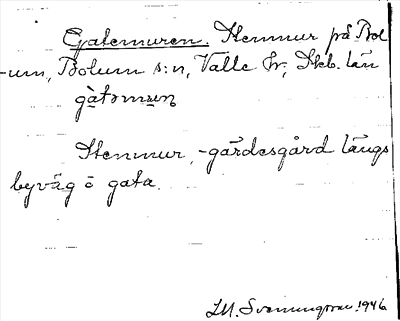 Gatemuren. Stenmur på Bol
-um, Bolum s:n, Valle hr, Skb. län
gàtəmuṇ
Stenmur, -gärdesgård längs
byväg o gata.
1946